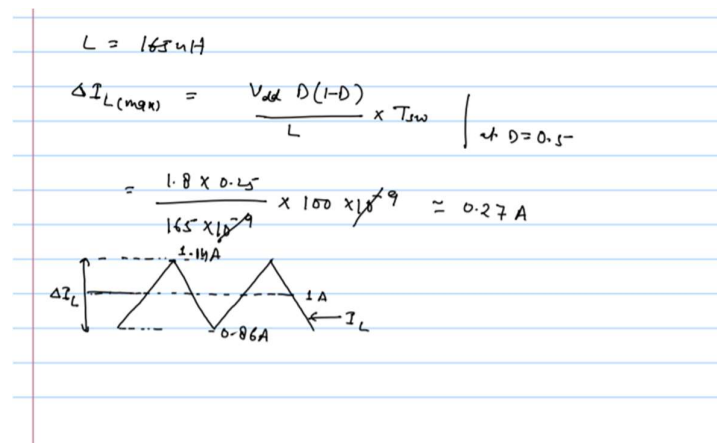 L = 165nH
ΔI_L(max) = V_dd D(1-D) / L × T_sw | at D=0.5
= 1.8 × 0.25 / 165 × 10^-9 × 100 × 10^-9 ≃ 0.27 A
1.14A
ΔI_L
1A
I_L
0.86A